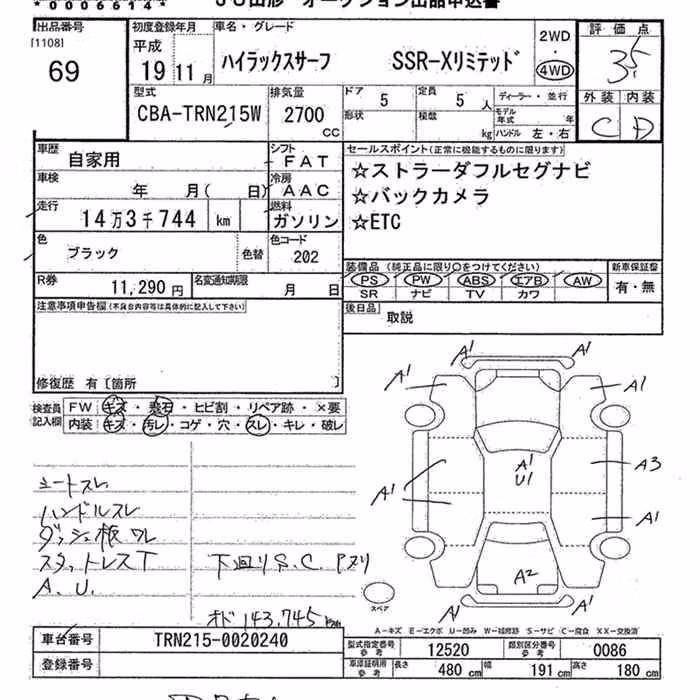 *0006614* JU山形 オークション出品申込書
出品番号
[1108]
69
初度登録年月
平成
19 11月
車名・グレード
ハイラックスサーフ SSR-Xリミテッド
2WD
・
4WD
評価点
3.5
外装 内装
C D
型式
CBA-TRN215W
排気量
2700
CC
ドア
5
定員
5 人
形状
積載
kg
ディーラー・並行
モデル年式 年
ハンドル 左・右
車歴
自家用
シフト
FAT
車検
年 月( 日)
冷房
AAC
走行
14万3千744 km
燃料
ガソリン
色
ブラック
色替
色コード
202
R券
11,290 円
名変通知期限
月 日
セールスポイント(正常に機能するものに限ります)
☆ストラーダフルセグナビ
☆バックカメラ
☆ETC
装備品(純正品に限り○をつけてください)
PS PW ABS エアB AW
SR ナビ TV カワ
新車保証書
有・無
後日品
取説
注意事項申告欄(不具合内容等は具体的に記入して下さい)
修復歴 有[箇所 ]
検査員
記入欄
FW キズ・飛石・ヒビ割・リペア跡・×要
内装 キズ・汚レ・コゲ・穴・スレ・キレ・破レ
シートスレ
ハンドルスレ
ダッシュ板ワレ
スタットレスT
A.U.
下廻りS.C.Pヌリ
オド143,745km
A1 A1
A1 A1
A1
U1
A3
A1
A1
A2
A1 A1
スペア
A-キズ E-エクボ U-凹み W-補修跡 S-サビ C-腐食 XX-交換済
車台番号 TRN215-0020240
登録番号
型式指定番号
参考
12520
類別区分番号
参考
0086
車庫証明用
参考
長さ 480 cm 幅 191 cm 高さ 180 cm